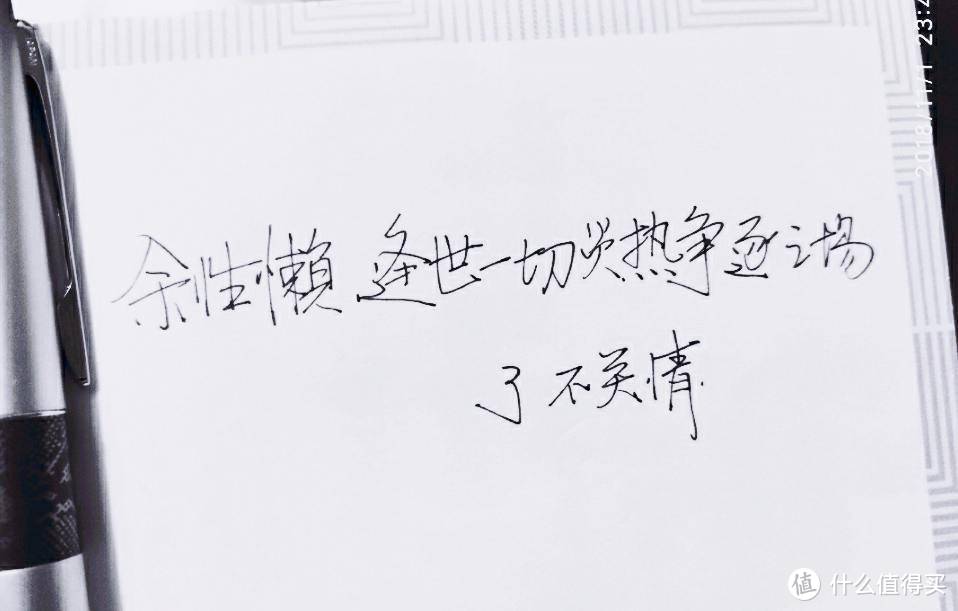 2018/11/1 23:4
余性懒 逢世一切炎热争逐之场
了不关情
值 什么值得买